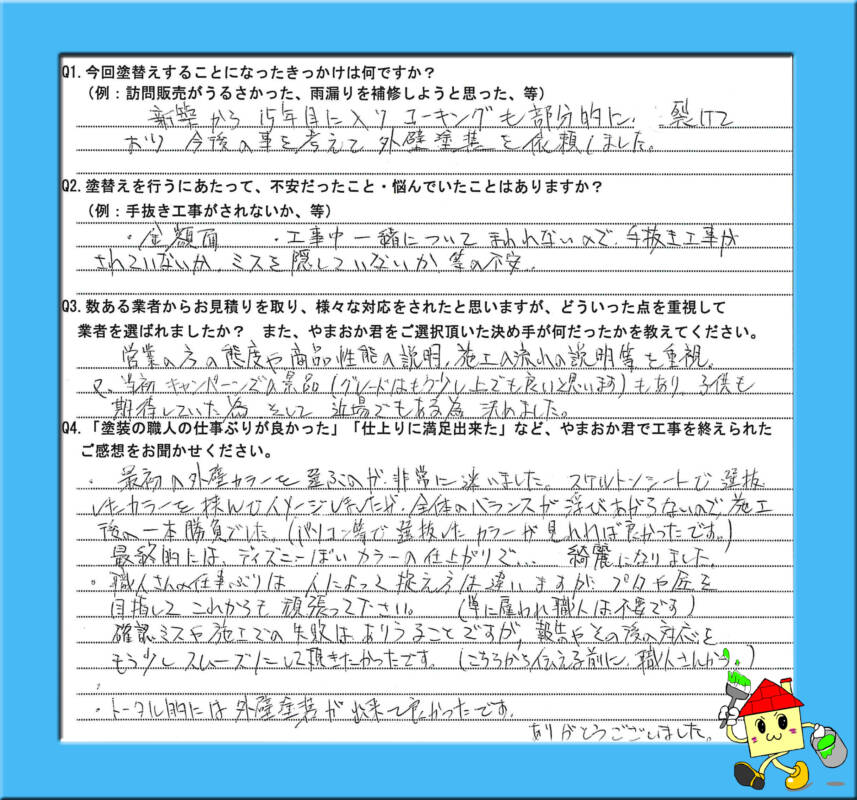 Q1. 今回塗替えすることになったきっかけは何ですか？
（例：訪問販売がうるさかった、雨漏りを補修しようと思った、等）
新築から15年目に入りコーキングも部分的に、裂けて
おり今後の事を考えて外壁塗装を依頼しました。
Q2. 塗替えを行うにあたって、不安だったこと・悩んでいたことはありますか？
（例：手抜き工事がされないか、等）
・金額面　・工事中一緒について まわれないので、手抜き工事が
されていないか、ミスを隠していないか、等の不安。
Q3. 数ある業者からお見積りを取り、様々な対応をされたと思いますが、どういった点を重視して
業者を選ばれましたか？　また、やまおか君をご選択頂いた決め手が何だったかを教えてください。
営業の方の態度や商品性能の説明、施工の流れの説明等を重視。
当初キャンペーンでの景品（グレードはもう少し上でも良いと思います）もあり 子供も
期待していた為 そして 近場でもある為 決めました。
Q4. 「塗装の職人の仕事ぶりが良かった」「仕上りに満足出来た」など、やまおか君で工事を終えられた
ご感想をお聞かせください。
・最初の外壁カラーを選ぶのが非常に迷いました。スケルトンシートで選抜
したカラーを挟んでイメージしましたが、全体のバランスが浮びあがらないので 施工
後の一本勝負でした。（パソコン等で選抜したカラーが見れれば良かったです。）
最終的には、ディズニーぽいカラーの仕上がりで… 綺麗になりました。
・職人さんの仕事ぶりは 人によって捉え方は違いますが、プロや匠を
目指して これからも 頑張って下さい。（単に雇われ職人は不要です）
確認ミスや施工での失敗は ありうることですが、報告やその後の対応を
もう少しスムーズにして頂きたかったです。（こちらから伝える前に、職人さんから。）
・トータル的には 外壁塗装が出来て良かったです。
ありがとうございました。